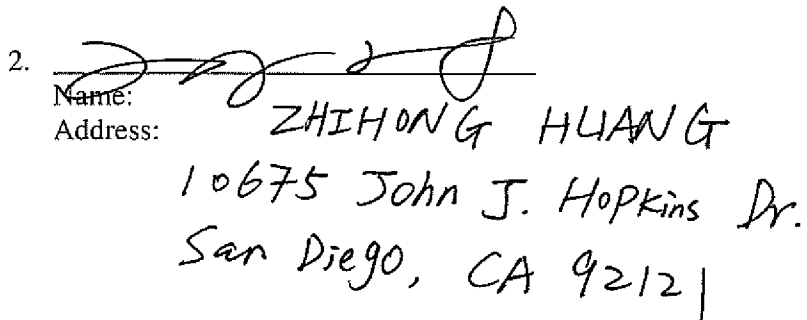 2.
Name:
Address: ZHIHONG HUANG
10675 John J. Hopkins Dr.
San Diego, CA 92121